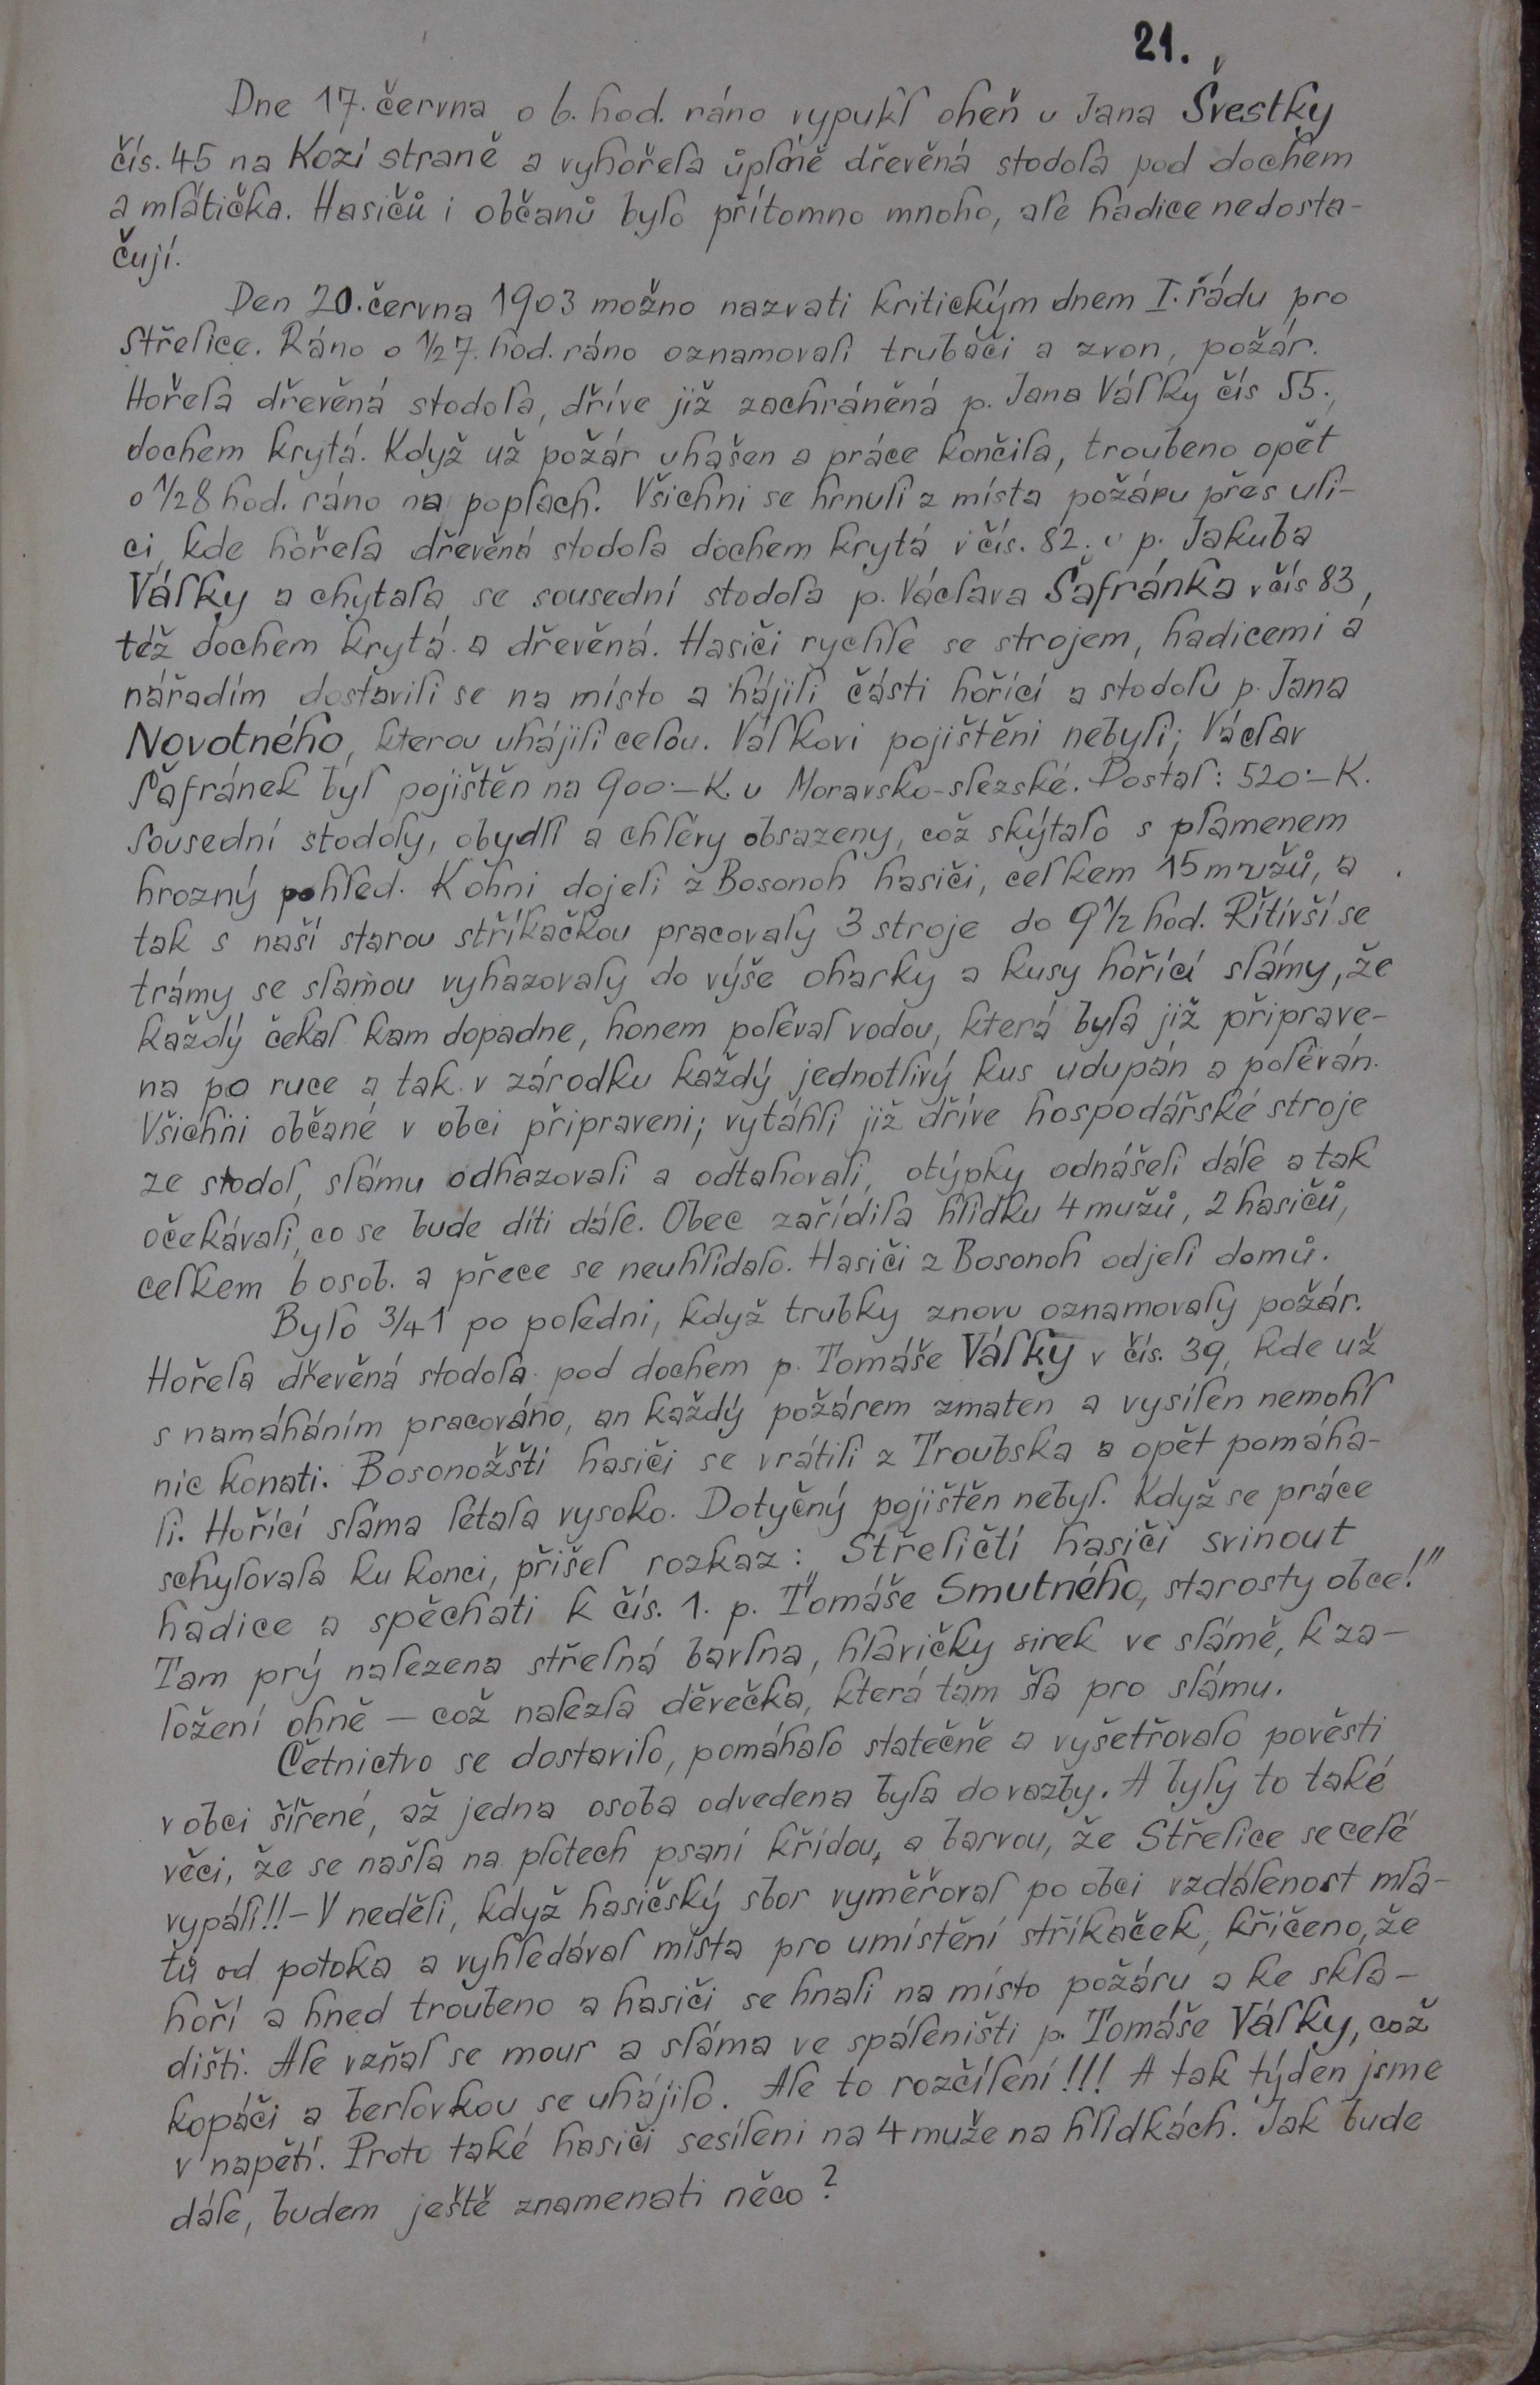 21.
Dne 17. června o 6. hod. ráno vypukl oheň u Jana Švestky
čís. 45 na Kozí straně a vyhořela úplně dřevěná stodola pod dochem
a mlátička. Hasičů i občanů bylo přítomno mnoho, ale hadice nedosta-
čují.
Den 20. června 1903 možno nazvati kritickým dnem I. řádu pro
Střelice. Ráno o 1/2 7. hod. ráno oznamovali trubači a zvon, požár.
Hořela dřevěná stodola, dříve již zachráněná p. Jana Války čís 55.,
dochem krytá. Když už požár uhašen a práce končila, troubeno opět
o 1/2 8 hod. ráno na poplach. Všichni se hrnuli z místa požáru přes uli-
ci, kde hořela dřevěná stodola dochem krytá v čís. 82. u p. Jakuba
Války a chytala se sousední stodola p. Václava Šafránka v čís 83,
též dochem krytá a dřevěná. Hasiči rychle se strojem, hadicemi a
nářadím dostavili se na místo a hájili části hořící a stodolu p. Jana
Novotného, kterou uhájili celou. Válkovi pojištěni nebyli; Václav
Šafránek byl pojištěn na 900·–K u Moravsko-slezské. Dostal: 520·–K.
Sousední stodoly, obydlí a chlévy obsazeny, což skýtalo s plamenem
hrozný pohled. Koňmi dojeli z Bosonoh hasiči, celkem 15 mužů, a
tak s naší starou stříkačkou pracovaly 3 stroje do 9 1/2 hod. Řítivší se
trámy se slámou vyhazovaly do výše oharky a kusy hořící slámy, že
každý čekal kam dopadne, honem poléval vodou, která byla již připrave-
na po ruce a tak v zárodku každý jednotlivý kus udupán a poléván.
Všichni občané v obci připraveni; vytáhli již dříve hospodářské stroje
ze stodol, slámu odhazovali a odtahovali, otýpky odnášeli dále a tak
očekávali, co se bude díti dále. Obec zařídila hlídku 4 mužů, 2 hasičů,
celkem 6 osob. a přece se neuhlídalo. Hasiči z Bosonoh odjeli domů.
Bylo 3/4 1 po poledni, když trubky znovu oznamovaly požár.
Hořela dřevěná stodola pod dochem p. Tomáše Války v čís. 39, kde už
s namáháním pracováno, an každý požárem zmaten a vysílen nemohl
nic konati. Bosonožští hasiči se vrátili z Troubska a opět pomáha-
li. Hořící sláma létala vysoko. Dotyčný pojištěn nebyl. Když se práce
schylovala ku konci, přišel rozkaz: „Střeličtí hasiči svinout
hadice a spěchati k čís. 1. p. Tomáše Smutného, starosty obce!"
Tam prý nalezena střelná bavlna, hlavičky sirek ve slámě, k za-
ložení ohně – což nalezla děvečka, která tam šla pro slámu.
Četnictvo se dostavilo, pomáhalo statečně a vyšetřovalo pověsti
v obci šířené, až jedna osoba odvedena byla do vazby. A byly to také
věci, že se našla na plotech psaní křídou, a barvou, že Střelice se celé
vypálí!! – V neděli, když hasičský sbor vyměřoval po obci vzdálenost mla-
tů od potoka a vyhledával místa pro umístění stříkaček, křičeno, že
hoří a hned troubeno a hasiči se hnali na místo požáru a ke skla-
dišti. Ale vzňal se mour a sláma ve spáleništi p. Tomáše Války, což
kopáči a berlovkou se uhájilo. Ale to rozčílení!!! A tak týden jsme
v napětí. Proto také hasiči sesíleni na 4 muže na hlídkách. Jak bude
dále, budem ještě znamenati něco?